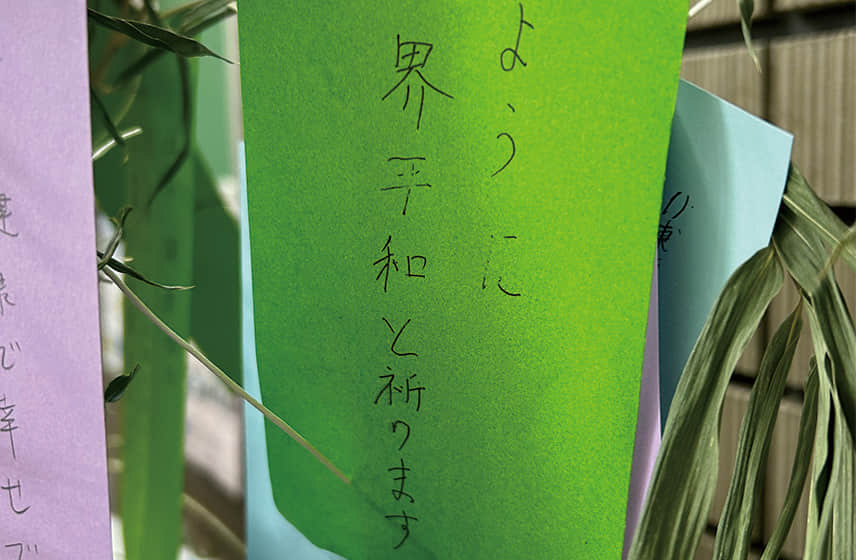 ように
界平和と祈ります
健康で幸せで